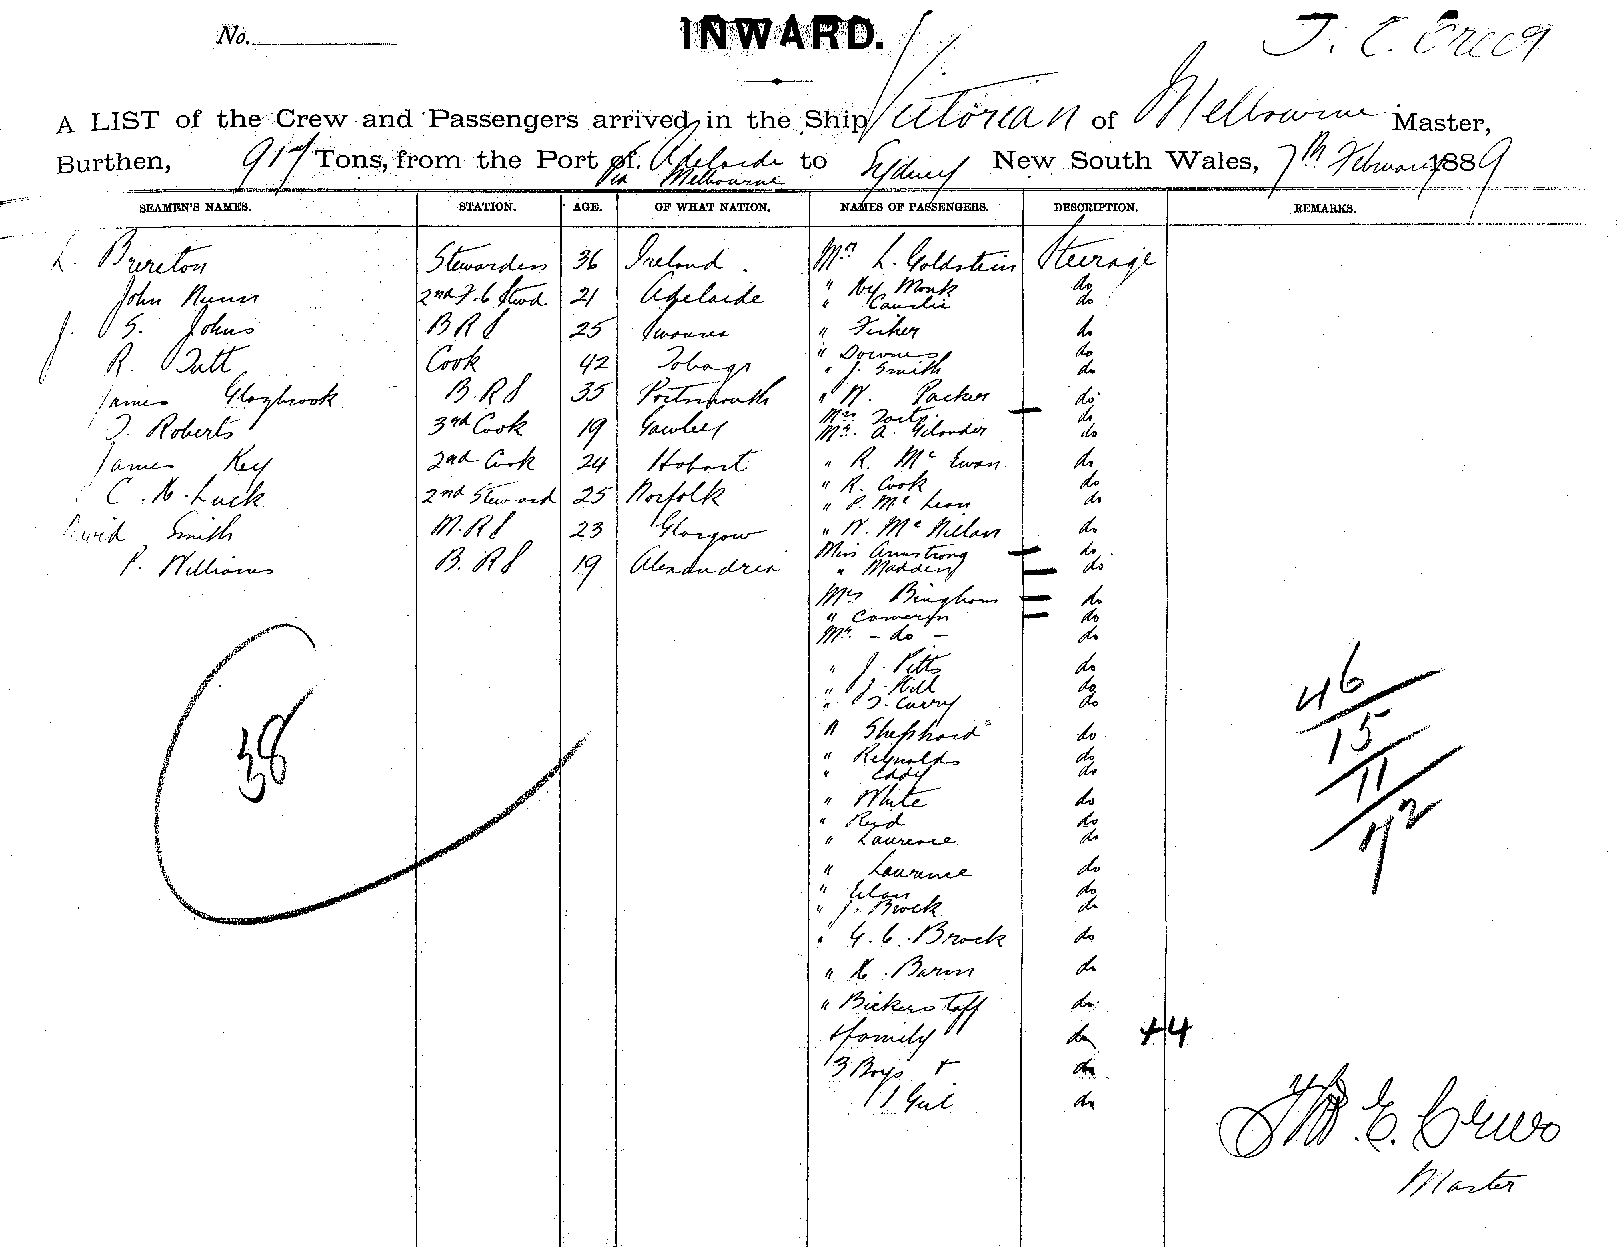 No.
INWARD.
A LIST of the Crew and Passengers arrived in the Ship Victorian of Melbourne Master,
Burthen, 917 Tons, from the Port of Adelaide to Sydney New South Wales, 7th February 1889
Via Melbourne
SEAMEN'S NAMES. STATION. AGE. OF WHAT NATION. NAMES OF PASSENGERS. DESCRIPTION. REMARKS.
L. Brereton Stewardess 36 Ireland. Mr. L. Goldstein Steerage
John Nunn 2nd F. C Stwd. 21 Adelaide " Hy Monk do
" do
J. S. Johns B R S 25 Swansea " Fisher do
R. Tatt Cook 42 Tobago " Downes do
" J. Smith do
James Glazbrook B. R S 35 Portsmouth " W. Packer do
Mrs do
T. Roberts 3rd Cook 19 Gawler Mr. A. do
James Key 2nd Cook 24 Hobart " R. Mc Ewan do
" R. Cook do
C. H. Luck 2nd Steward 25 Norfolk " P. Mc Lean do
David Smith M. R S 23 Glasgow " W. Mc Millan do
Miss Armstrong do
P. Williams B. R S 19 Alexandria " Madden do
Mrs Bingham do
" Cameron do
Mr. - do - do
" J. Pitts do
" J. Hill do
" T. Curry do
" Shephard do
" Reynolds do
" Eddy do
" White do
" Reid do
" Laurence do
" Laurence do
" do
" J. Brock do
" G. C. Brock do
" H. Baron do
" Bickerstaff do
family do +4
3 Boys + do
1 Girl do
38
46
15
11
72
Thos E. Creer
Master